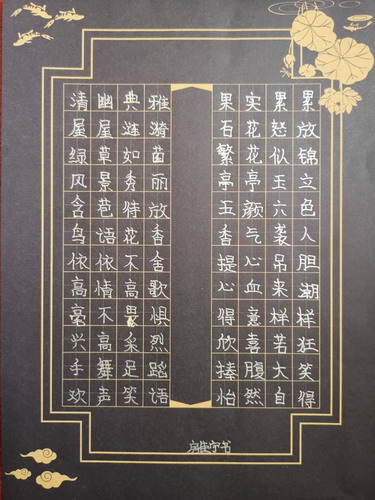 清幽典雅
屋屋涟漪
绿草如茵
风景秀丽
含苞待放
鸟语花香
依依不舍
高情高歌
毫不畏惧
兴高采烈
手舞足蹈
欢声笑语
果实累累
石花怒放
繁花似锦
亭亭玉立
玉颜六色
香气袭人
提心吊胆
心血来潮
得意样样
欣喜若狂
捧腹大笑
怡然自得
宁书